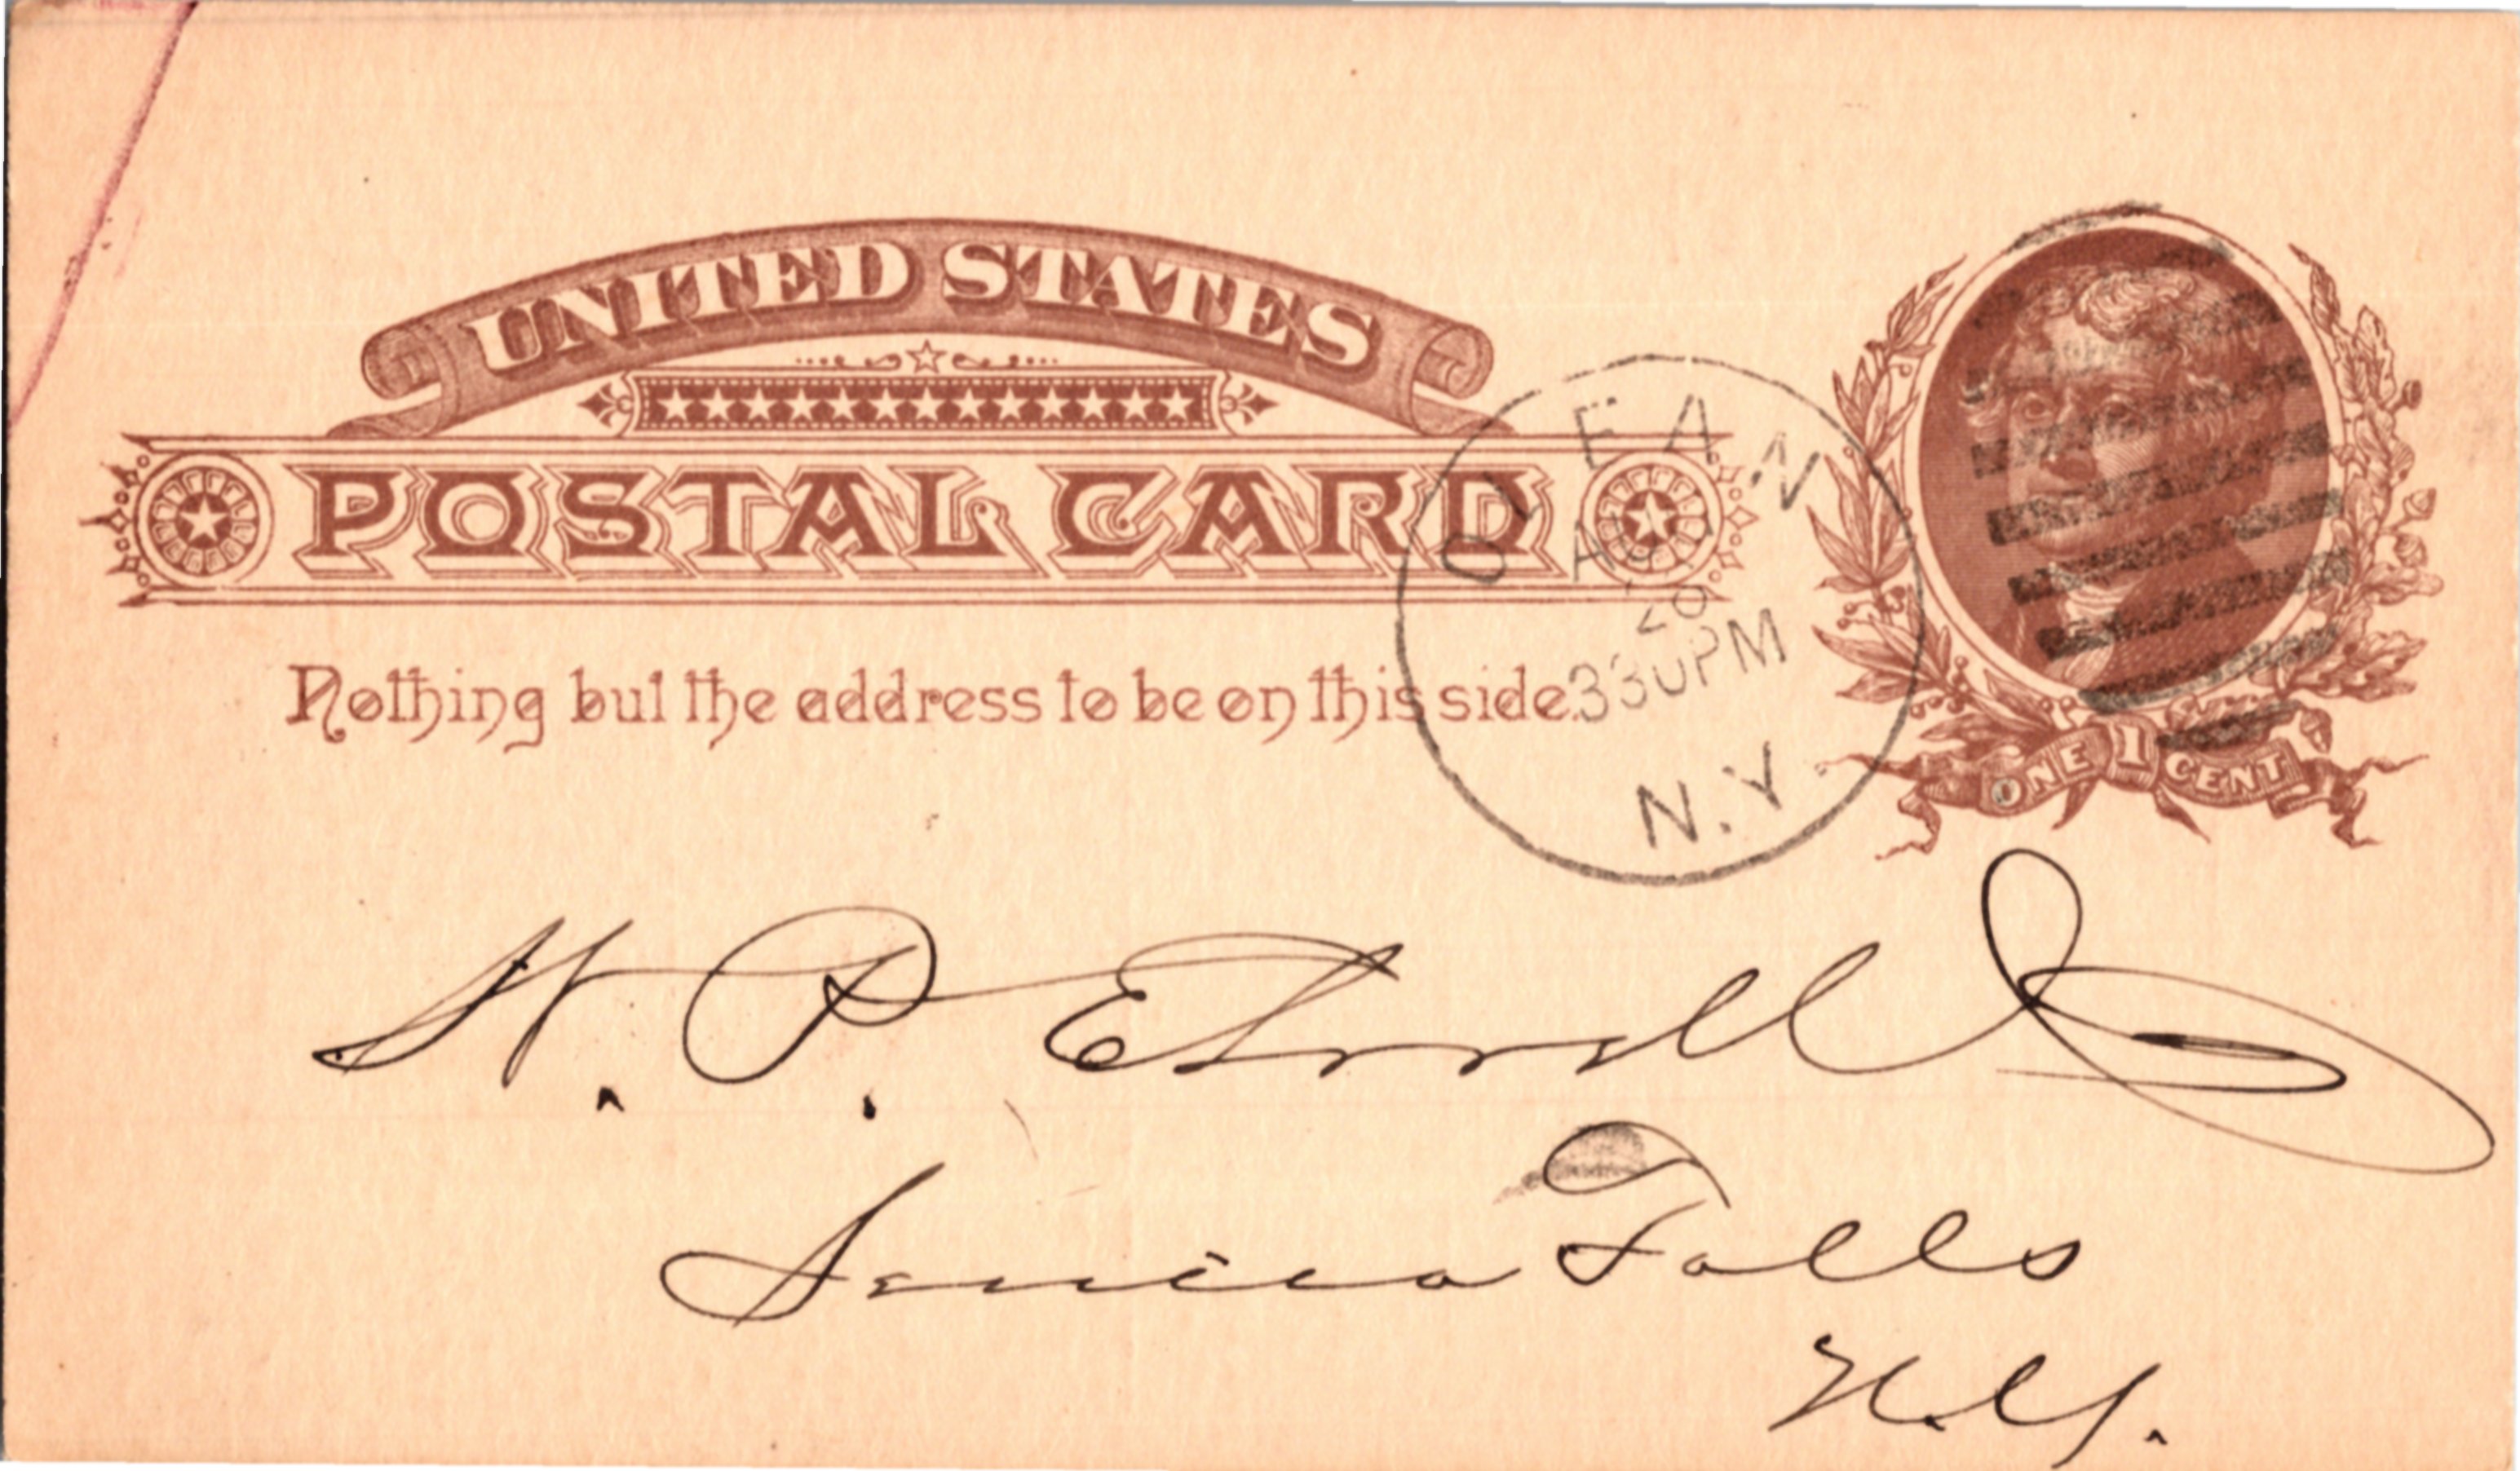 UNITED STATES
POSTAL CARD
Nothing but the address to be on this side.
OLEAN
AUG
26
330PM
N.Y.
ONE 1 CENT
H. P.
Seneca Falls
N.Y.